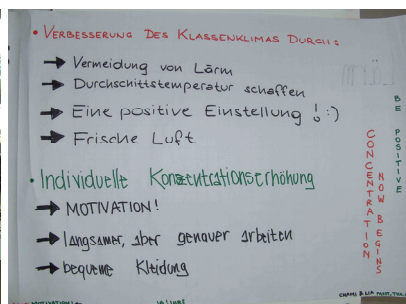 • VERBESSERUNG DES KLASSENKLIMAS DURCH:
→ Vermeidung von Lärm
→ Durchschittstemperatur schaffen
→ Eine positive Einstellung ! :)
→ Frische Luft
• Individuelle Konzentrationserhöhung
→ MOTIVATION!
→ langsamer, aber genauer arbeiten
→ bequeme Kleidung
BE POSITIVE
CONCENTRATION
NOW BEGINS